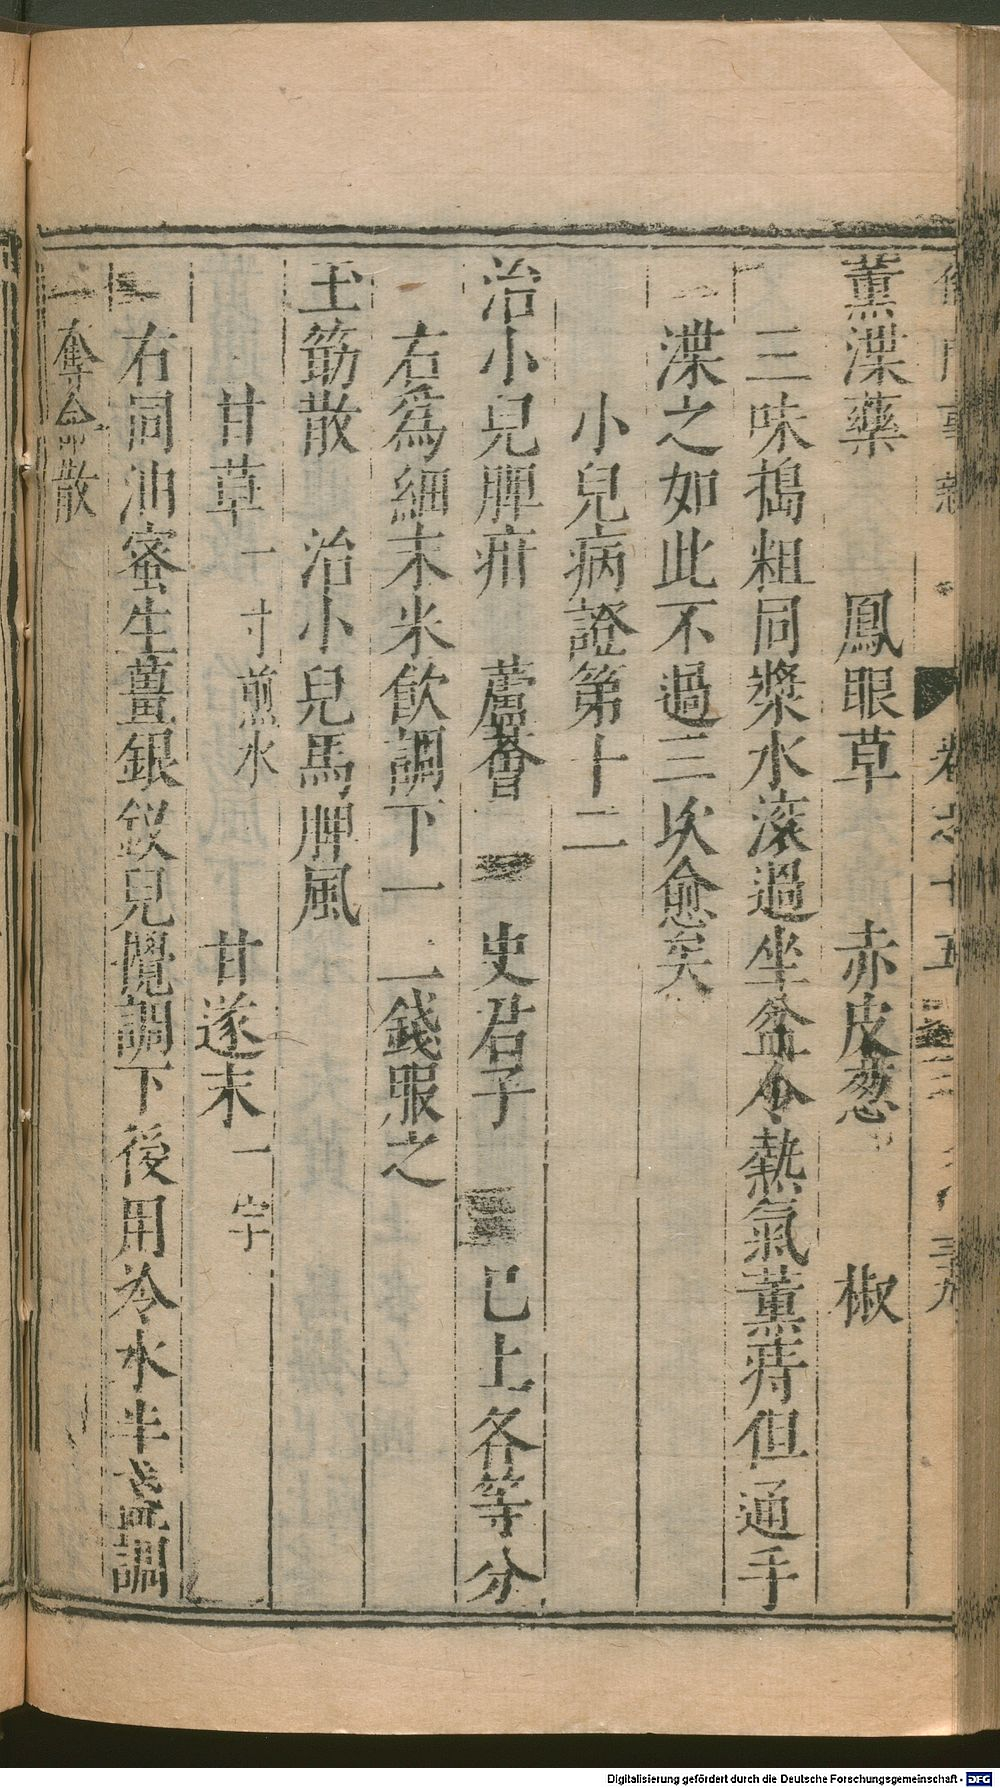 儒門事親 卷之十五 三九
薰渫藥 鳳眼草 赤皮葱 椒
三味搗粗同漿水滚過坐盆令熱氣薰痔但通手
渫之如此不過三次愈矣
小兒病證第十二
治小兒脾疳 蘆薈 史君子 已上各等分
右爲細末米飲調下一二錢服之
玉筯散 治小兒馬脾風
甘草一寸煎水 甘遂末一字
右同油蜜生薑銀釵兒攪調下後用冷水半盞調
奪命散
Digitalisierung gefördert durch die Deutsche Forschungsgemeinschaft - DFG